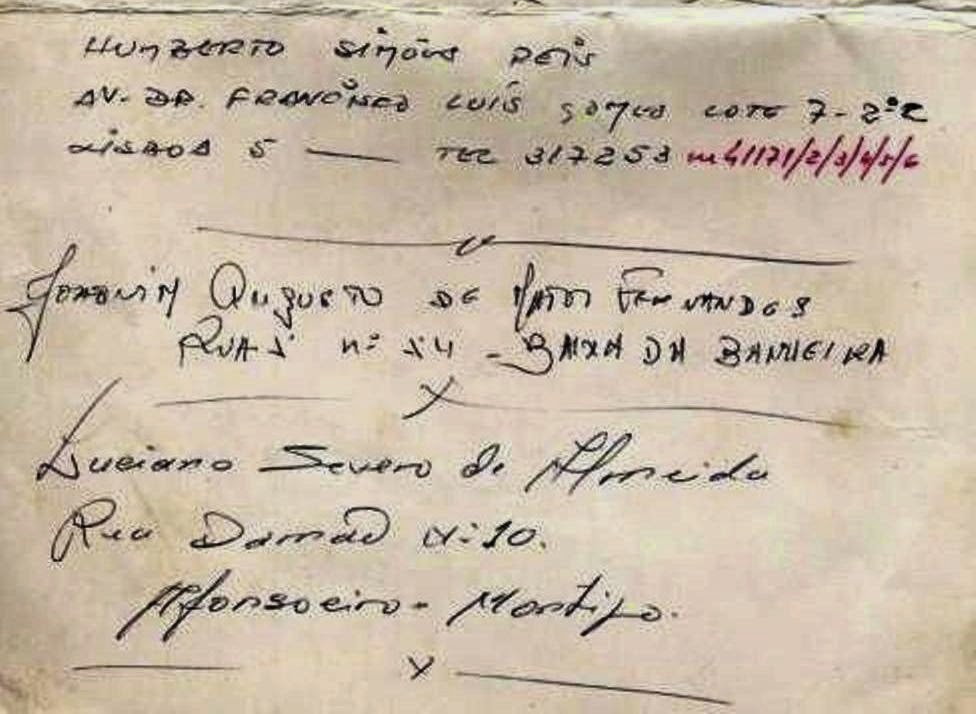 HUMBERTO SIMÕES REIS
AV. DR. FRANCISCO LUÍS GOMES LOTE 7-2º
LISBOA 5 — TEL 317253 41171/2/3/4/5/6
JOAQUIM AUGUSTO DE MATOS FERNANDES
RUA nº 54 - BAIXA DA BANHEIRA
Luciano Severo de Almeida
Rua Damão Nº 10.
Afonsoeiro - Montijo.